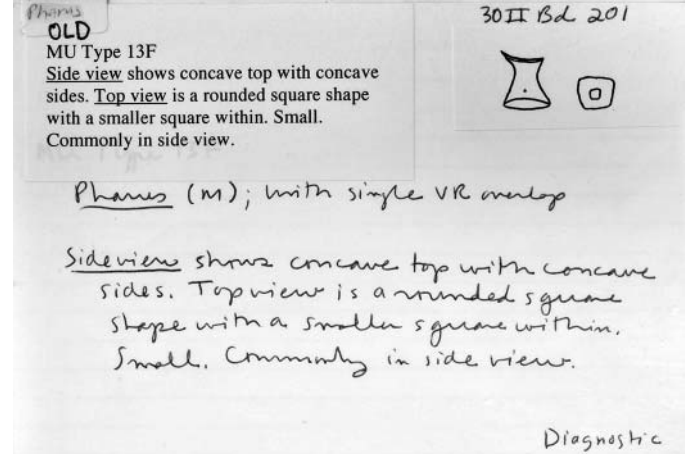 Pharus
OLD
MU Type 13F
Side view shows concave top with concave
sides. Top view is a rounded square shape
with a smaller square within. Small.
Commonly in side view.
30 II Bd 201
Pharus (M); with single VR overlap
Sideview shows concave top with concave
sides. Topview is a rounded square
shape with a smaller square within.
Small. Commonly in side view.
Diagnostic